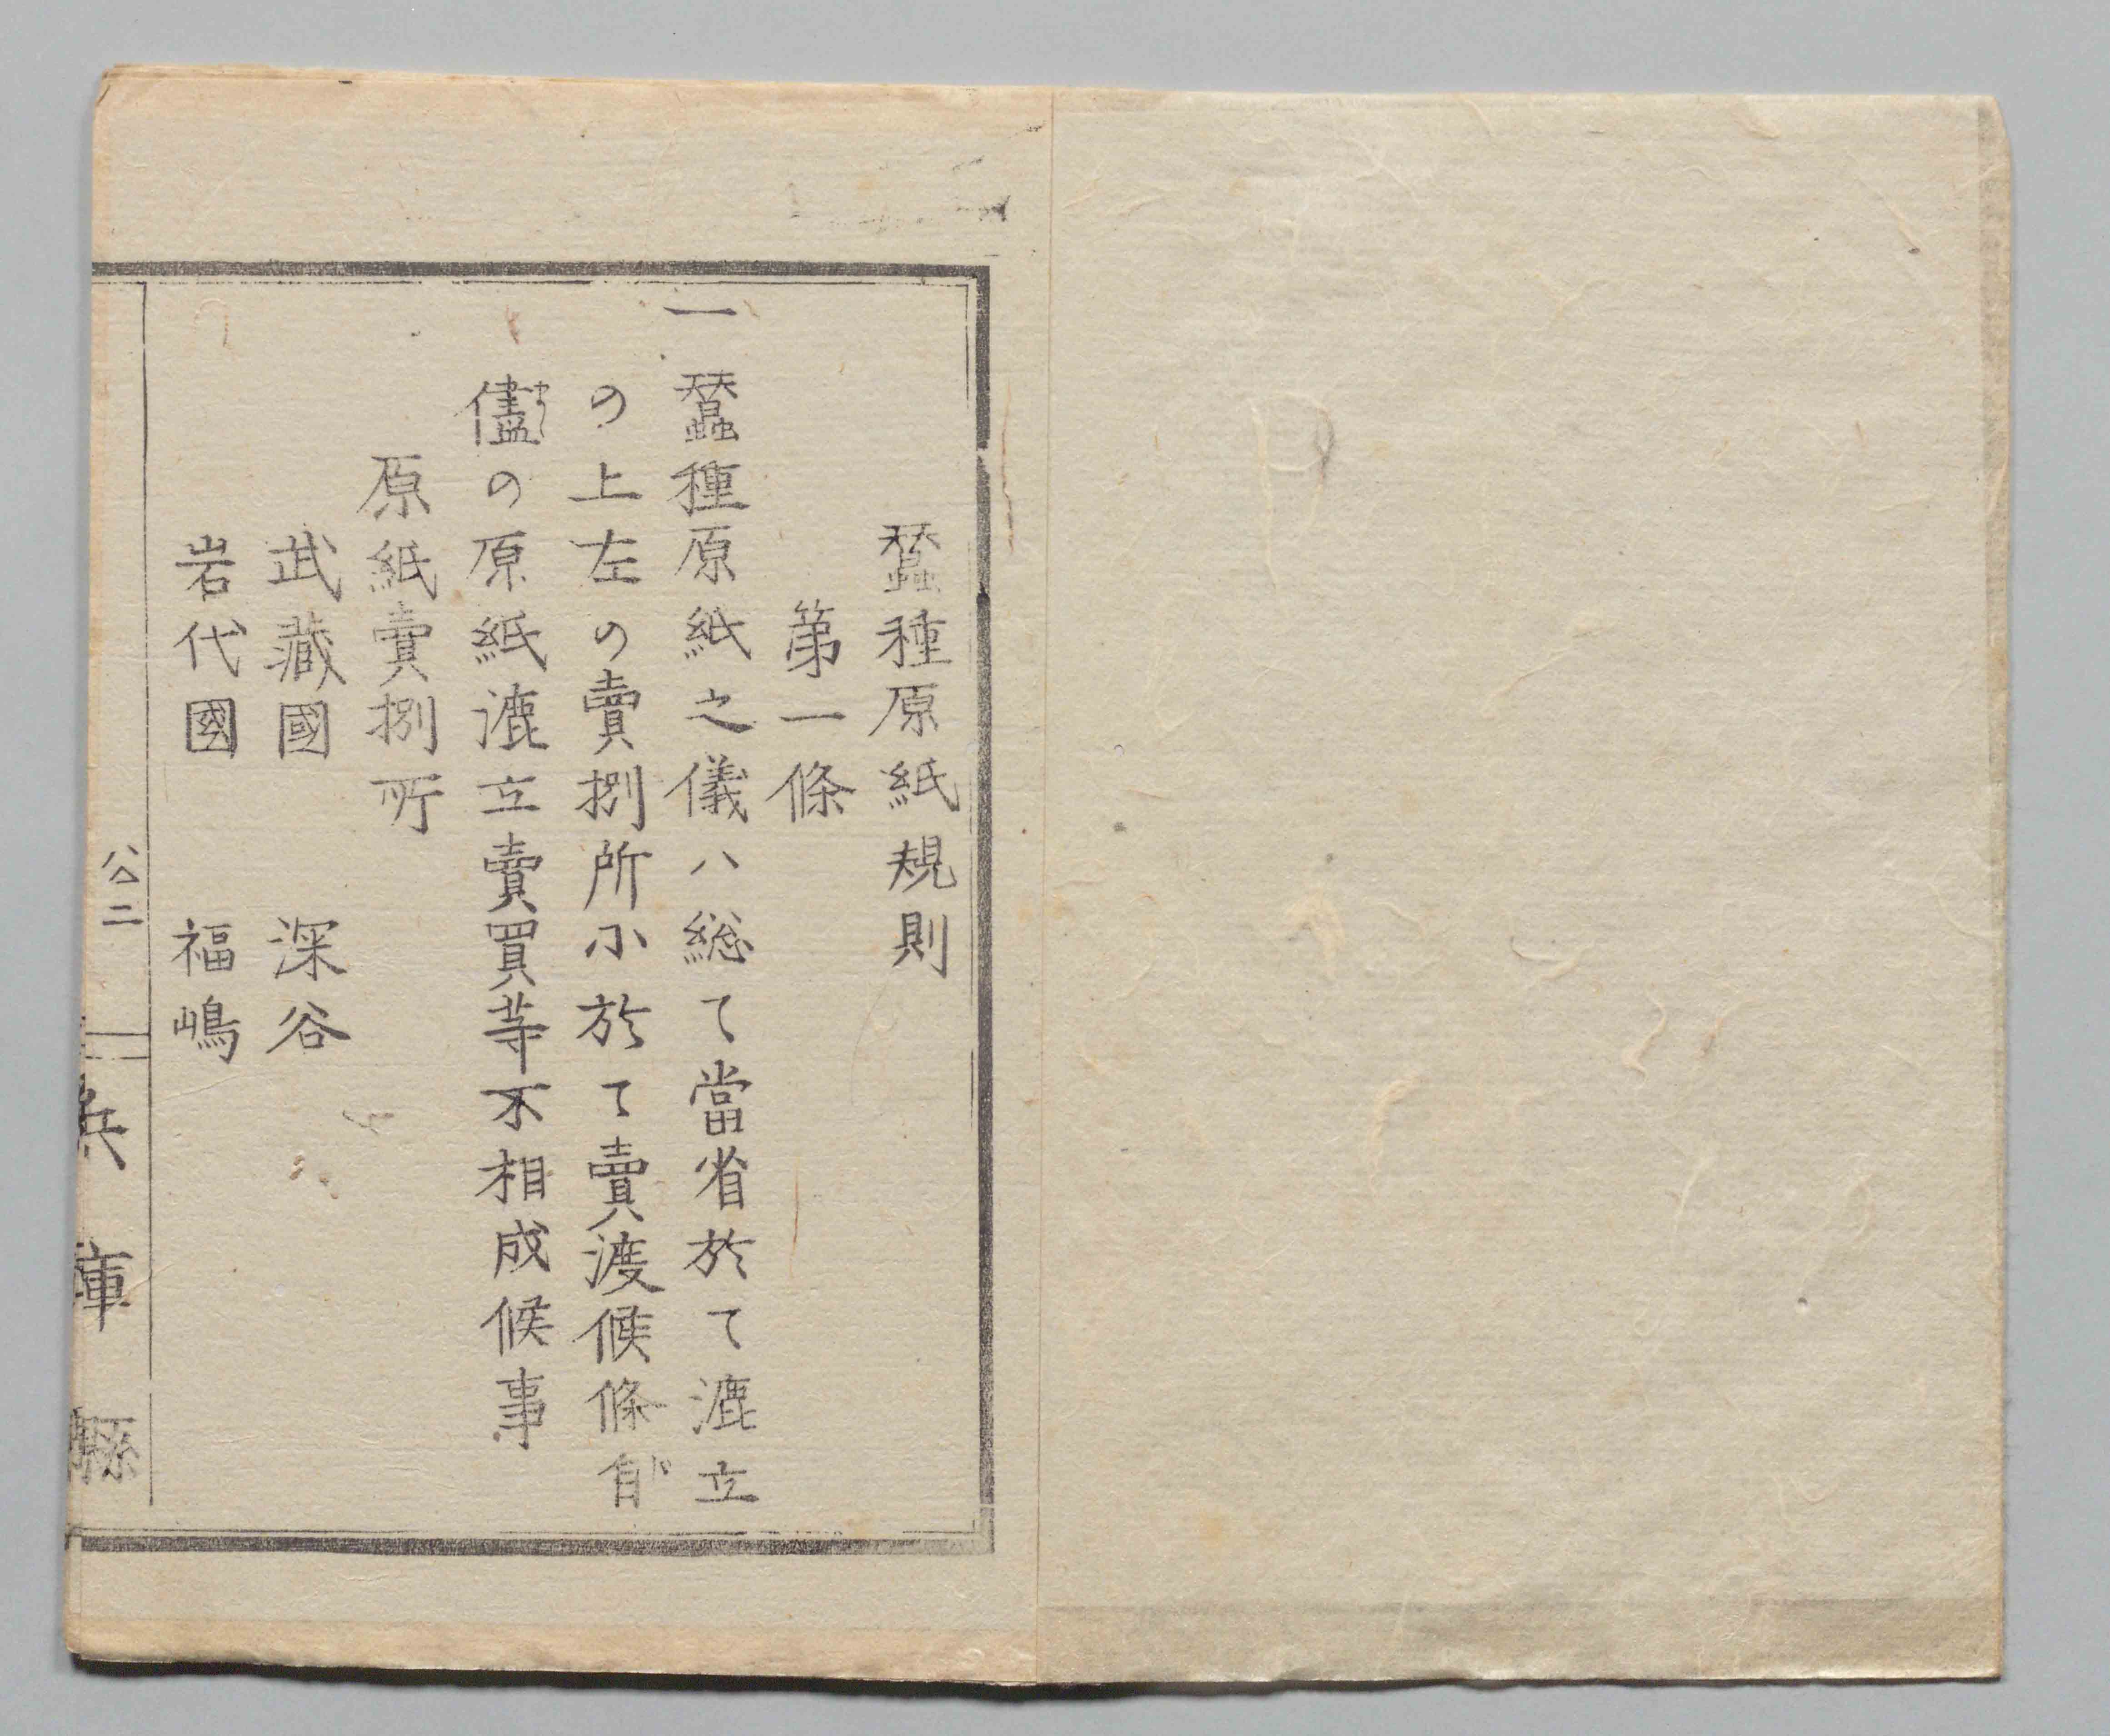 蠶種原紙規則
第一條
一蠶種原紙之儀ハ総て當省於て漉立
の上左の賣捌所小於て賣渡候條自
儘の原紙漉立賣買等不相成候事
原紙賣捌所
武藏國 深谷
岩代國 福嶋
公二
兵庫縣